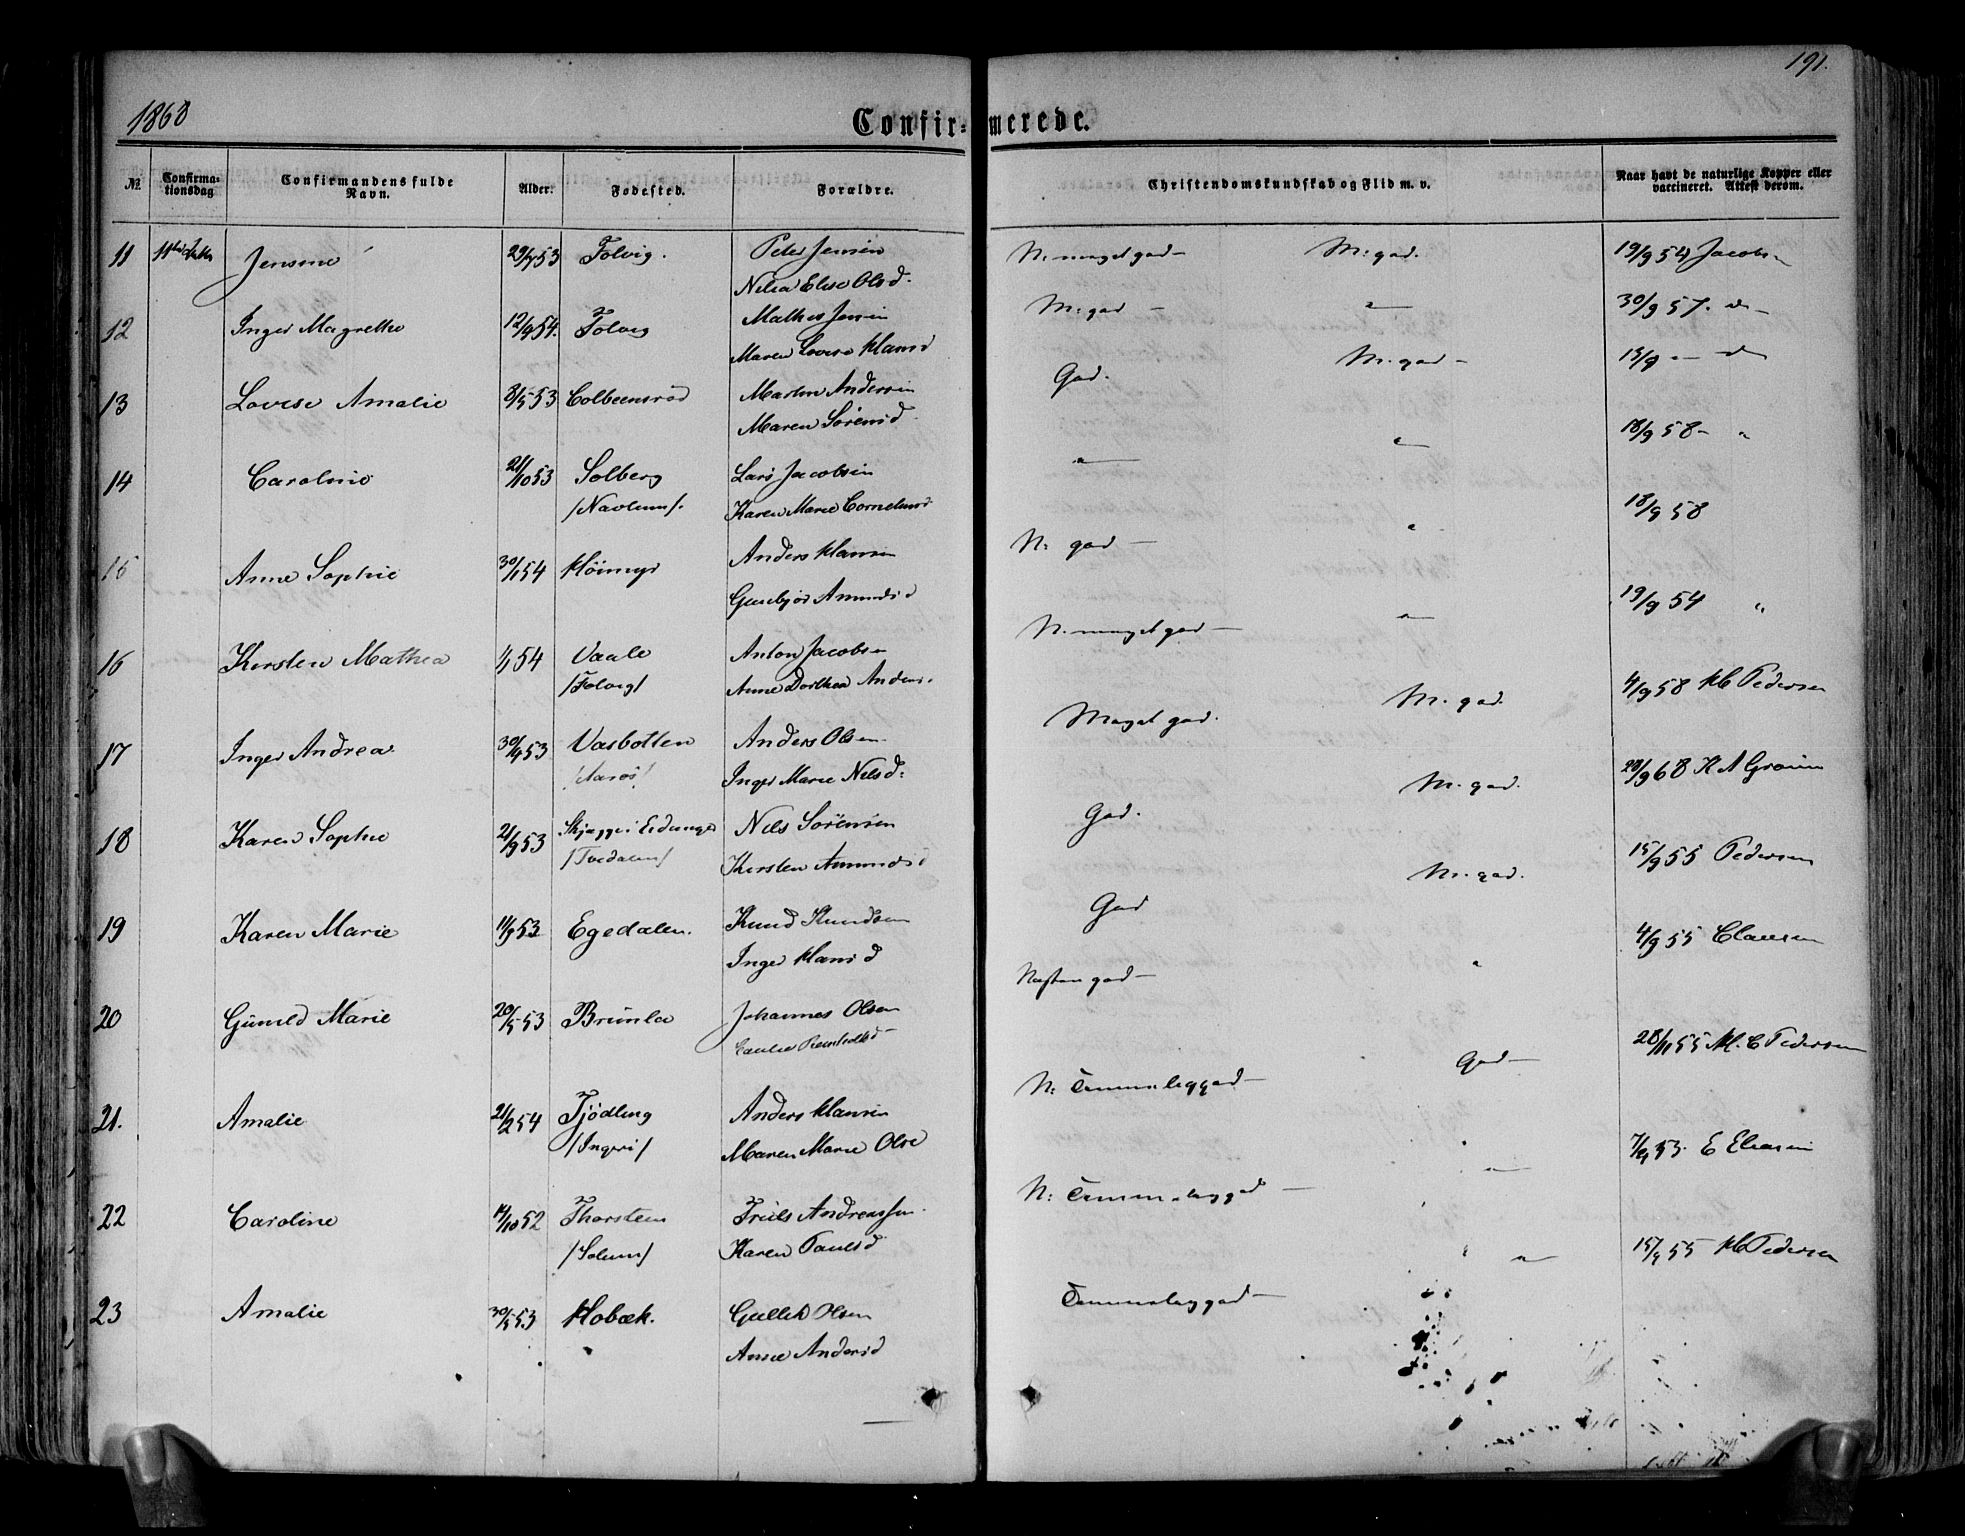 191.
1868
Confirmerede.
№ Confirmationsdag Confirmandens fulde Navn. Alder. Fødested. Forældre. Christendomskundskab og Flid m. v. Naar havt de naturlige Kopper eller vaccineret. Attest derom.
11 Jensine 29/7 53 Folvig. Peter Jensen N. meget god — M. god. 19/9 54 Jacobsen
Nilia Elise Olsd.
12 Inger Magrethe 12/9 54. Folvig Mathis Jensen M. god — " 30/9 57. do
Maren Lovise Hansd
13 Lovise Amalie 3/5 53 Colbeensrød Martin Andersen God. M. god — 15/9 — do
Maren Sørensd.
14 Caroline 21/10 53 Solberg Lars Jacobsen " " 18/9 58 — "
/Navlum/. Karen Marie Corneliusd
15 Anne Sophie 30/1 54 Høimyr Anders Hansen N. god — " 18/9 58
Gunbjør Amundsd
16 Kirsten Mathea 1/1 54 Vaale Anton Jacobsen N. meget god — " 19/9 54 "
/Folvig/ Anne Dorthea Anders.
17 Inger Andrea 30/4 53 Vasbotten Anders Olsen Meget god. M. god. 4/9 58 HC Pedersen
/Aarøs/ Inger Marie Nilsd:
18 Karen Sophie 21/9 53 Skjeggei Eidanger Nils Sørensen God. M. god. 20/9 68 H A Grønn
/Tvedalen/ Kirsten Amundsd
19 Karen Marie 11/9 53 Egedalen. Knud Knudsen God M. god. 15/9 55 Pedersen
Inger Hansd
20 Gunild Marie 20/5 53 Brunla Johannes Olsen Næsten god — " 4/9 55 Clausen
21. Amalie 21/2 54 Tjødling Anders Hansen N: Temmelig god — God — 28/11 55 H. C Pedersen
/Ingeri/ Maren Marie Olsd
22 Caroline 14/10 52 Thorstein Friels Andreassen. N: Temmelig god — " 7/9 53. E Eliasen
/Solum/ Karen Paulsd
23 Amalie 30/5 53 Hobæk. Gullik Olsen Temmelig god — " 15/9 55 HC Pedersen
Anne Andersd